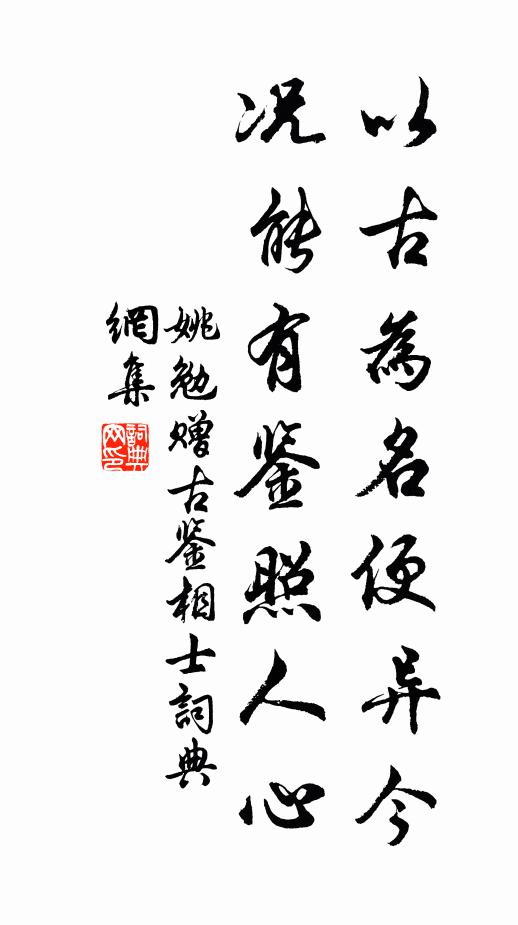 以古為名便异今
况能有鉴照人心
姚勉赠古鉴相士詞典
網集
詞典
网印